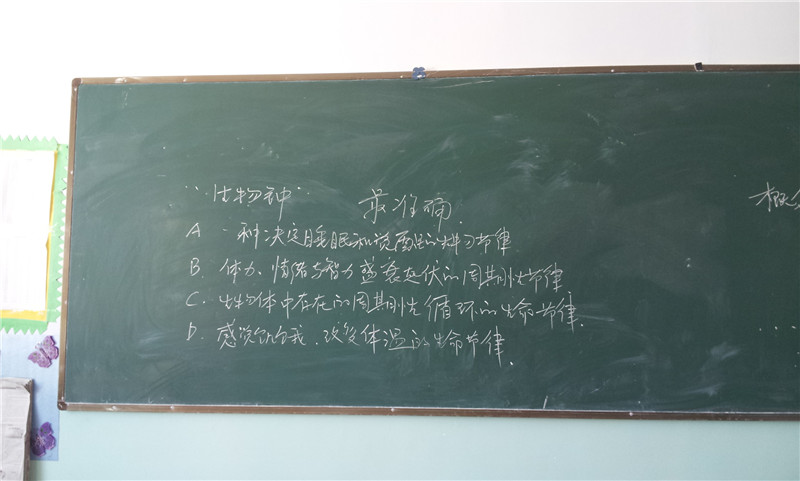 “生物种” 最准确.
A 一种决定睡眠和觉醒的节律
B. 体力、情绪与智力盛衰起伏的周期性节律
C. 生物体中存在的周期性循环的生命节律.
D. 感觉饥饿、改变体温的生命节律.
概